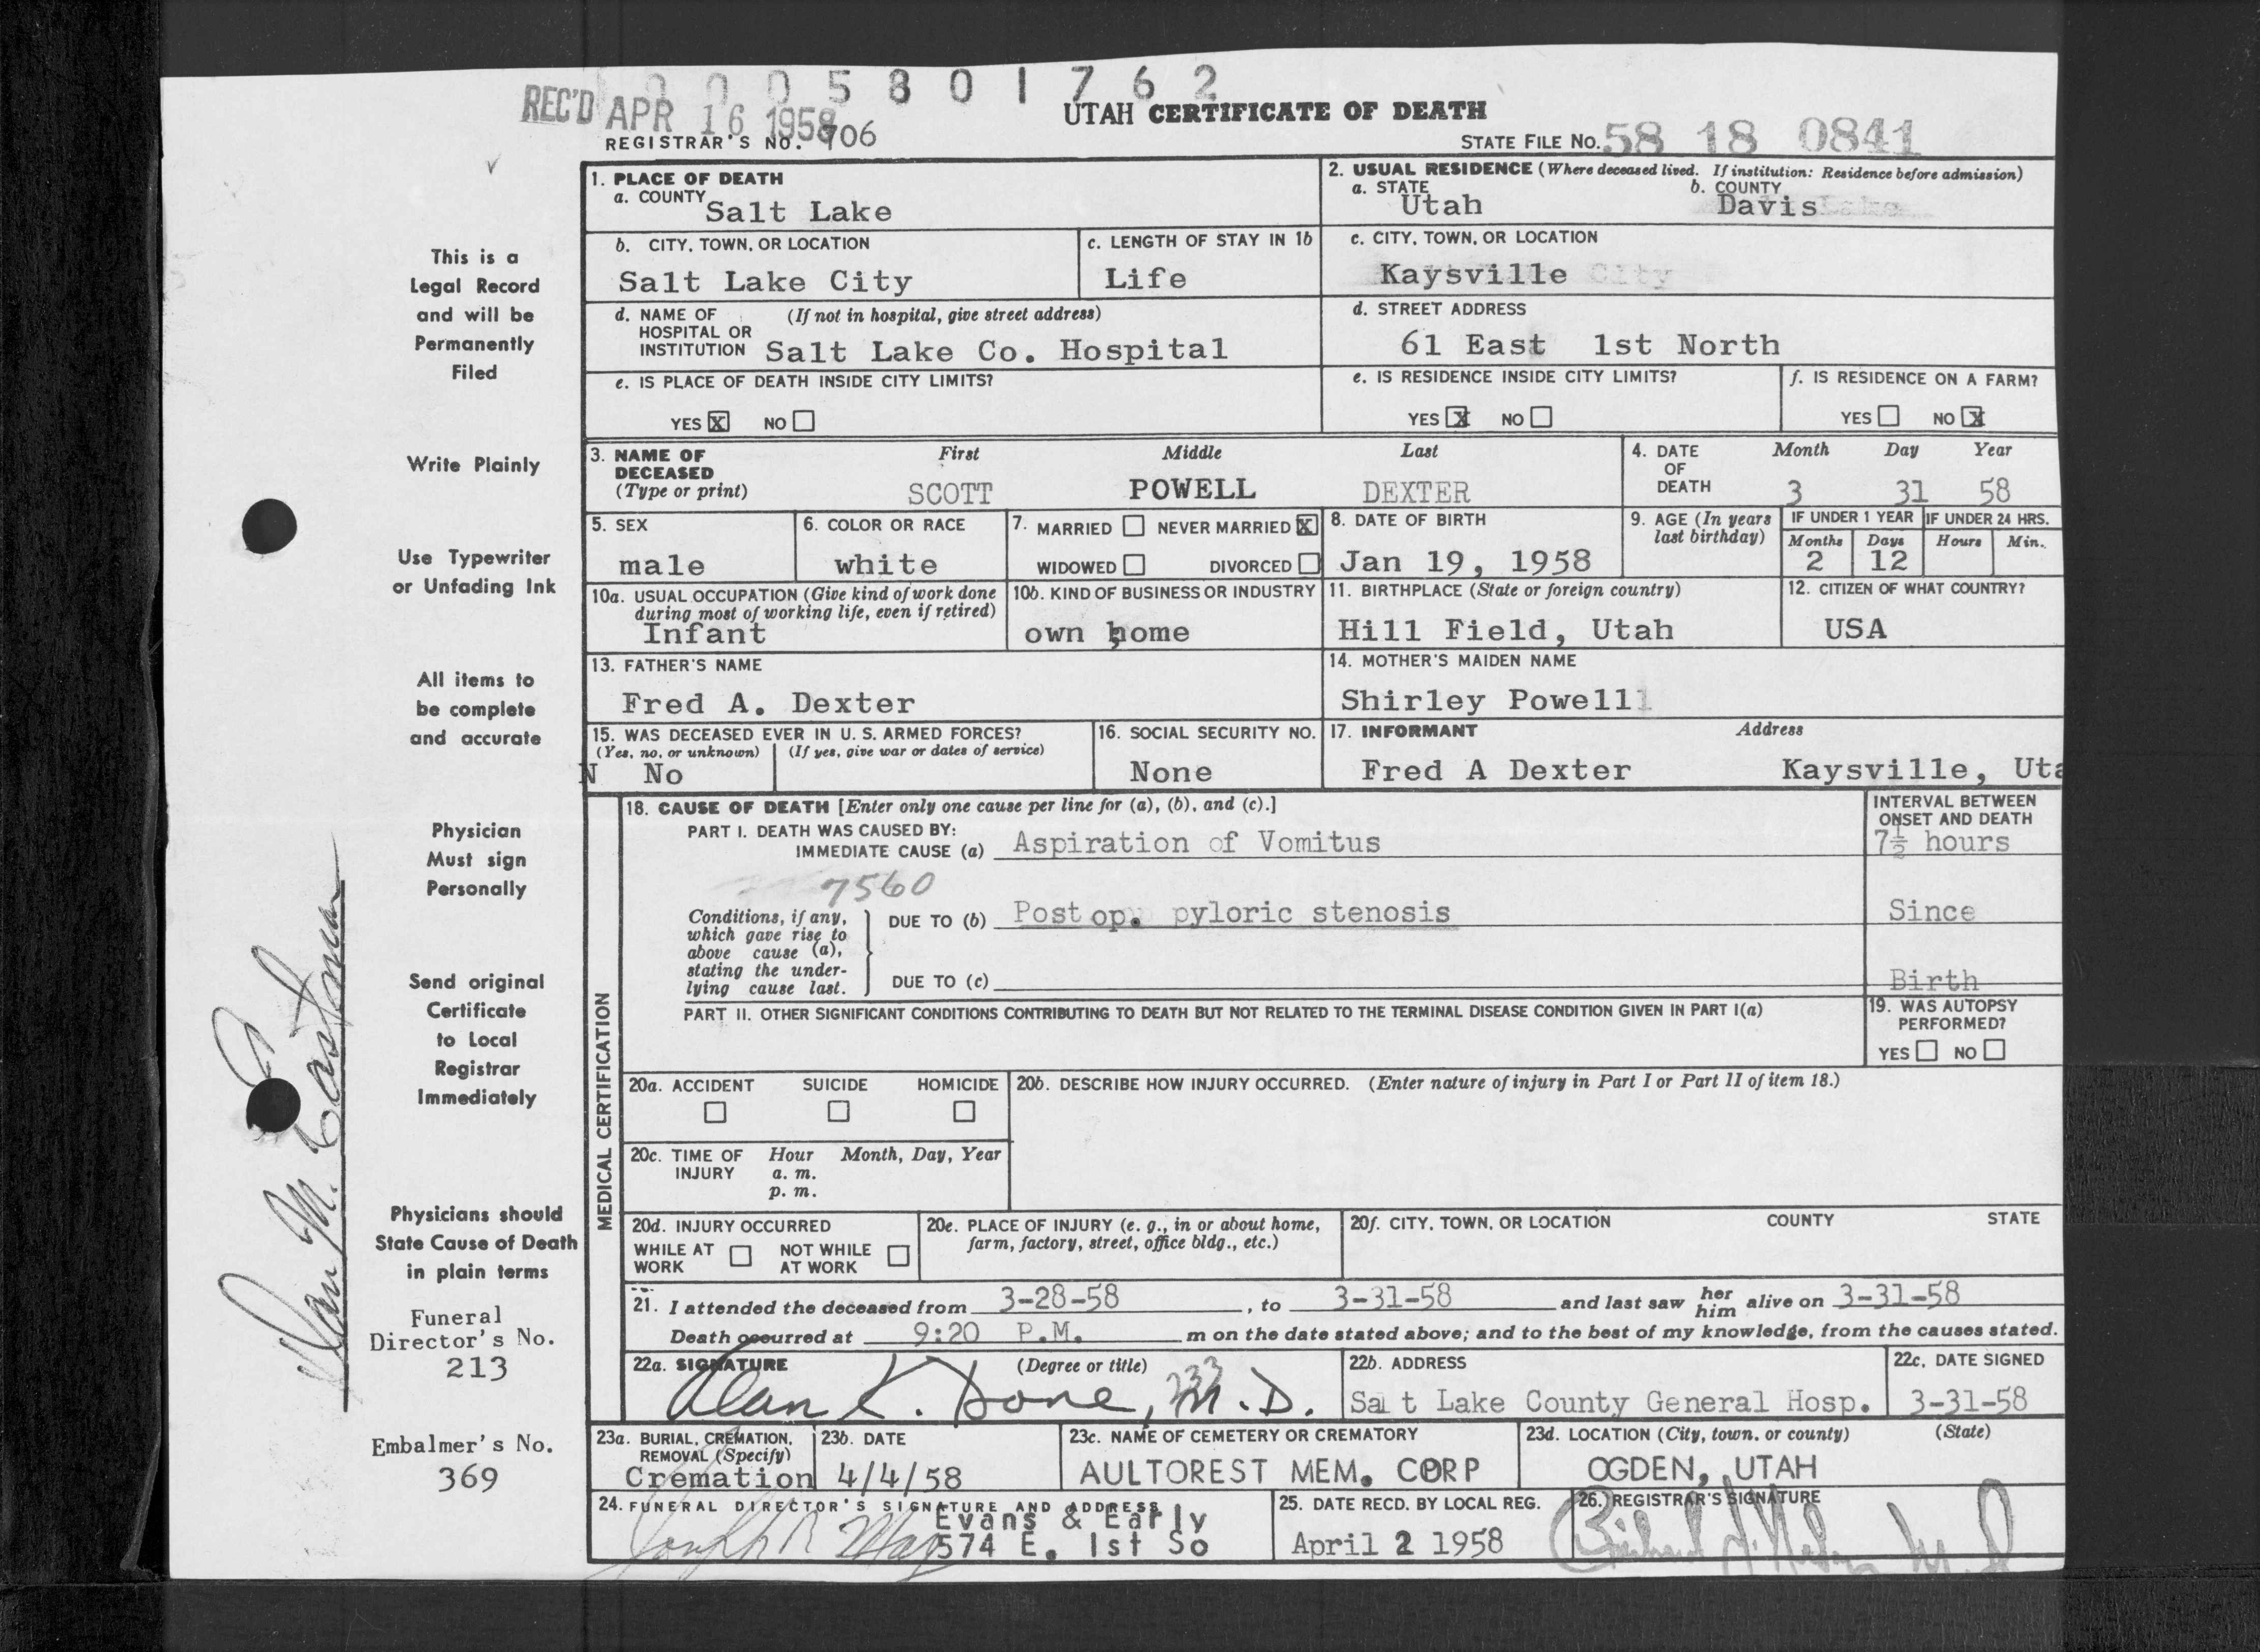 0005801762
REC'D APR 16 1958
UTAH CERTIFICATE OF DEATH
REGISTRAR'S NO. 706
STATE FILE NO. 58 18 0841
1. PLACE OF DEATH
a. COUNTY Salt Lake
2. USUAL RESIDENCE (Where deceased lived. If institution: Residence before admission)
a. STATE Utah b. COUNTY Davis
b. CITY, TOWN, OR LOCATION Salt Lake City
c. LENGTH OF STAY IN 1b Life
c. CITY, TOWN, OR LOCATION Kaysville
d. NAME OF HOSPITAL OR INSTITUTION (If not in hospital, give street address) Salt Lake Co. Hospital
d. STREET ADDRESS 61 East 1st North
e. IS PLACE OF DEATH INSIDE CITY LIMITS?
YES X NO
e. IS RESIDENCE INSIDE CITY LIMITS?
YES X NO
f. IS RESIDENCE ON A FARM?
YES NO X
3. NAME OF DECEASED (Type or print)
First Middle Last
SCOTT POWELL DEXTER
4. DATE OF DEATH
Month Day Year
3 31 58
5. SEX male
6. COLOR OR RACE white
7. MARRIED NEVER MARRIED X
WIDOWED DIVORCED
8. DATE OF BIRTH Jan 19, 1958
9. AGE (In years last birthday)
IF UNDER 1 YEAR IF UNDER 24 HRS.
Months Days Hours Min.
2 12
10a. USUAL OCCUPATION (Give kind of work done during most of working life, even if retired) Infant
10b. KIND OF BUSINESS OR INDUSTRY own home
11. BIRTHPLACE (State or foreign country) Hill Field, Utah
12. CITIZEN OF WHAT COUNTRY? USA
13. FATHER'S NAME Fred A. Dexter
14. MOTHER'S MAIDEN NAME Shirley Powell
15. WAS DECEASED EVER IN U. S. ARMED FORCES?
(Yes, no, or unknown) (If yes, give war or dates of service)
N No
16. SOCIAL SECURITY NO. None
17. INFORMANT Address
Fred A Dexter Kaysville, Uta
MEDICAL CERTIFICATION
18. CAUSE OF DEATH [Enter only one cause per line for (a), (b), and (c).]
INTERVAL BETWEEN ONSET AND DEATH
PART I. DEATH WAS CAUSED BY:
IMMEDIATE CAUSE (a) Aspiration of Vomitus 7½ hours
7560
Conditions, if any, which gave rise to above cause (a), stating the underlying cause last.
DUE TO (b) Post op. pyloric stenosis Since
DUE TO (c) Birth
PART II. OTHER SIGNIFICANT CONDITIONS CONTRIBUTING TO DEATH BUT NOT RELATED TO THE TERMINAL DISEASE CONDITION GIVEN IN PART I(a)
19. WAS AUTOPSY PERFORMED?
YES NO
20a. ACCIDENT SUICIDE HOMICIDE
20b. DESCRIBE HOW INJURY OCCURRED. (Enter nature of injury in Part I or Part II of item 18.)
20c. TIME OF INJURY Hour Month, Day, Year
a. m.
p. m.
20d. INJURY OCCURRED
WHILE AT WORK NOT WHILE AT WORK
20e. PLACE OF INJURY (e. g., in or about home, farm, factory, street, office bldg., etc.)
20f. CITY, TOWN, OR LOCATION COUNTY STATE
21. I attended the deceased from 3-28-58, to 3-31-58 and last saw her him alive on 3-31-58
Death occurred at 9:20 P.M. m on the date stated above; and to the best of my knowledge, from the causes stated.
22a. SIGNATURE (Degree or title) 233
Alan K. Done, M.D.
22b. ADDRESS Salt Lake County General Hosp.
22c. DATE SIGNED 3-31-58
23a. BURIAL, CREMATION, REMOVAL (Specify) Cremation
23b. DATE 4/4/58
23c. NAME OF CEMETERY OR CREMATORY AULTOREST MEM. CORP
23d. LOCATION (City, town, or county) (State) OGDEN, UTAH
24. FUNERAL DIRECTOR'S SIGNATURE AND ADDRESS
Evans & Early
574 E. 1st So
25. DATE RECD. BY LOCAL REG. April 2 1958
26. REGISTRAR'S SIGNATURE
This is a
Legal Record
and will be
Permanently
Filed
Write Plainly
Use Typewriter
or Unfading Ink
All items to
be complete
and accurate
Physician
Must sign
Personally
Send original
Certificate
to Local
Registrar
Immediately
Physicians should
State Cause of Death
in plain terms
Funeral
Director's No.
213
Embalmer's No.
369